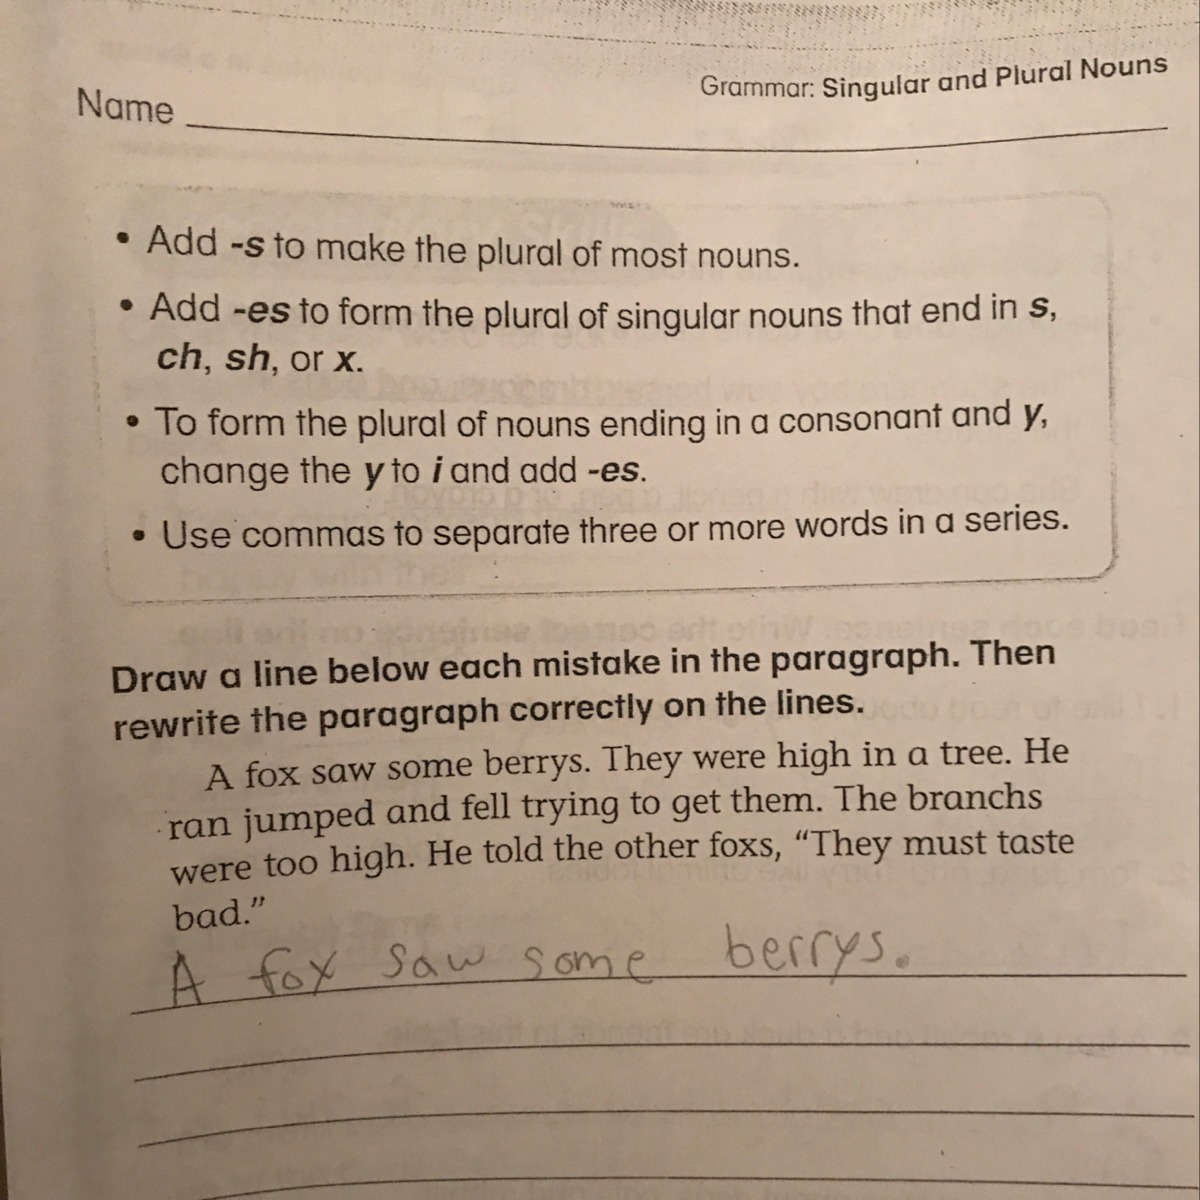 Grammar: Singular and Plural Nouns
Name
• Add -s to make the plural of most nouns.
• Add -es to form the plural of singular nouns that end in s,
ch, sh, or x.
• To form the plural of nouns ending in a consonant and y,
change the y to i and add -es.
• Use commas to separate three or more words in a series.
Draw a line below each mistake in the paragraph. Then
rewrite the paragraph correctly on the lines.
A fox saw some berrys. They were high in a tree. He
ran jumped and fell trying to get them. The branchs
were too high. He told the other foxs, “They must taste
bad.”
A fox saw some berrys.